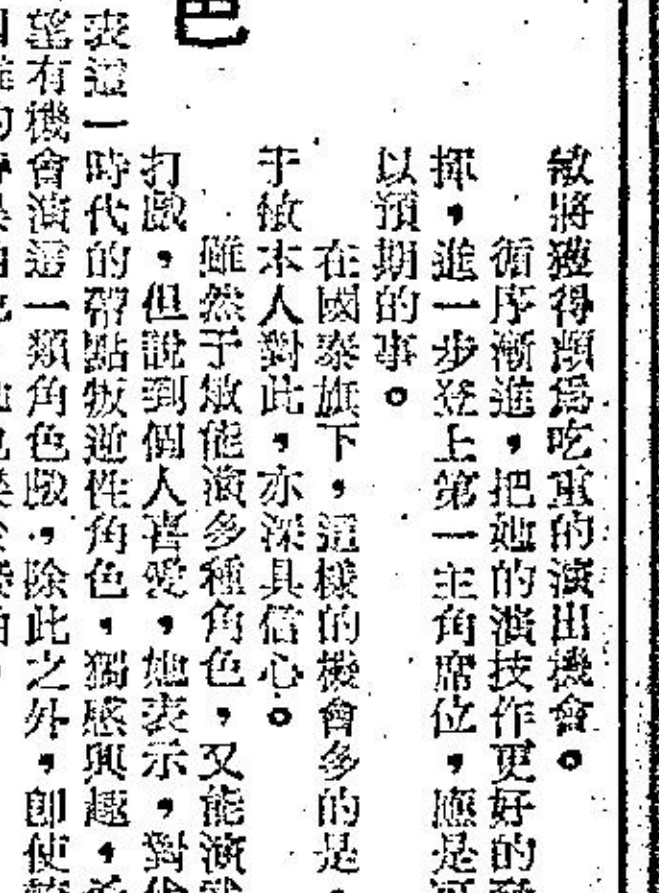 敏將獲得頗爲吃重的演出機會。
循序漸進，把她的演技作更好的發
揮，進一步登上第一主角席位，應是可
以預期的事。
在國泰旗下，這樣的機會多的是，
于敏本人對此，亦深具信心。
雖然于敏能演多種角色，又能演
打戲，但說到個人喜愛，她表示，對代
色
表這一時代的帶點叛逆性角色，獨感興趣，希
望有機會演這一類角色戲，除此之外，卽使